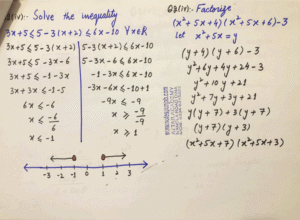 (iv):- Solve the inequality
3x+5≤5-3(x+2)≤6x-10 ∀x∈R
3x+5≤5-3(x+2)
3x+5≤5-3x-6
3x+5≤-1-3x
3x+3x≤-1-5
6x≤-6
x≤-6/6
x≤-1
5-3(x+2)≤6x-10
5-3x-6≤6x-10
-1-3x≤6x-10
-3x-6x≤-10+1
-9x≤-9
x≥-9/-9
x≥1
-3 -2 -1 0 1 2 3
Q3(iv):- Factorize
(x²+5x+4)(x²+5x+6)-3
Let x²+5x=y
(y+4)(y+6)-3
y²+6y+4y+24-3
y²+10y+21
y²+7y+3y+21
y(y+7)+3(y+7)
(y+7)(y+3)
(x²+5x+7)(x²+5x+3)